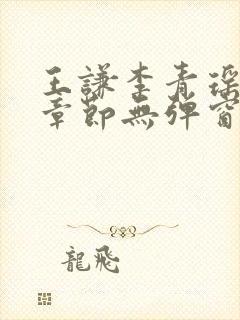 王謙李青瑶
章節無彈窗
龍飛